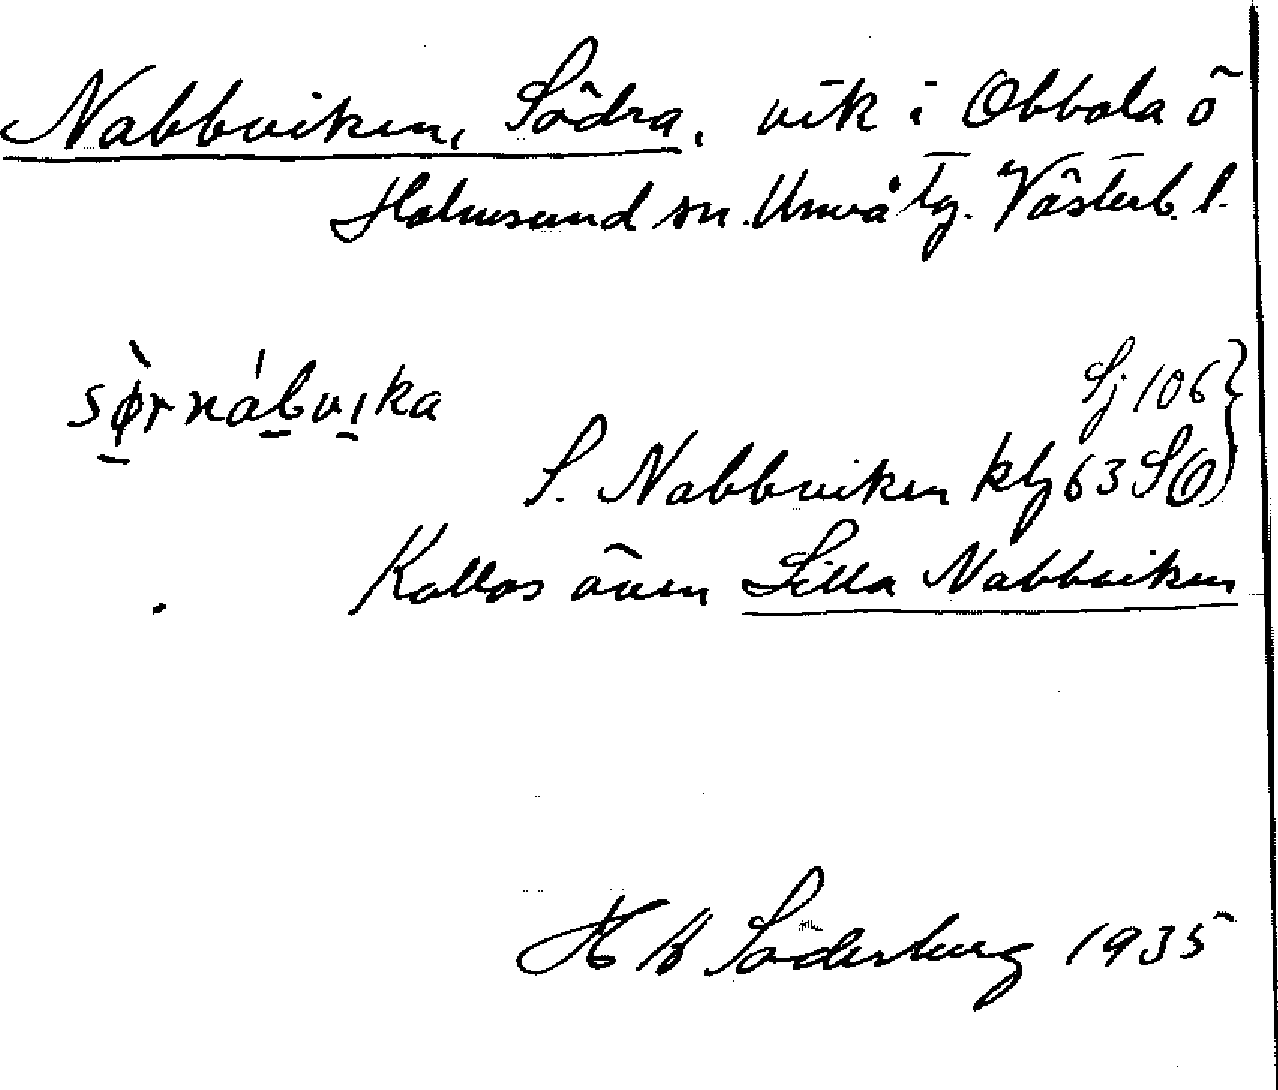 Nabbviken, Södra, vik i Obbola ö
Holmsund sn. Umeå tg. Västerb. l.
sø̀rnábvıka
Sj 106
S. Nabbviken klj 63 SO
Kallas även Lilla Nabbviken
Söderberg 1935